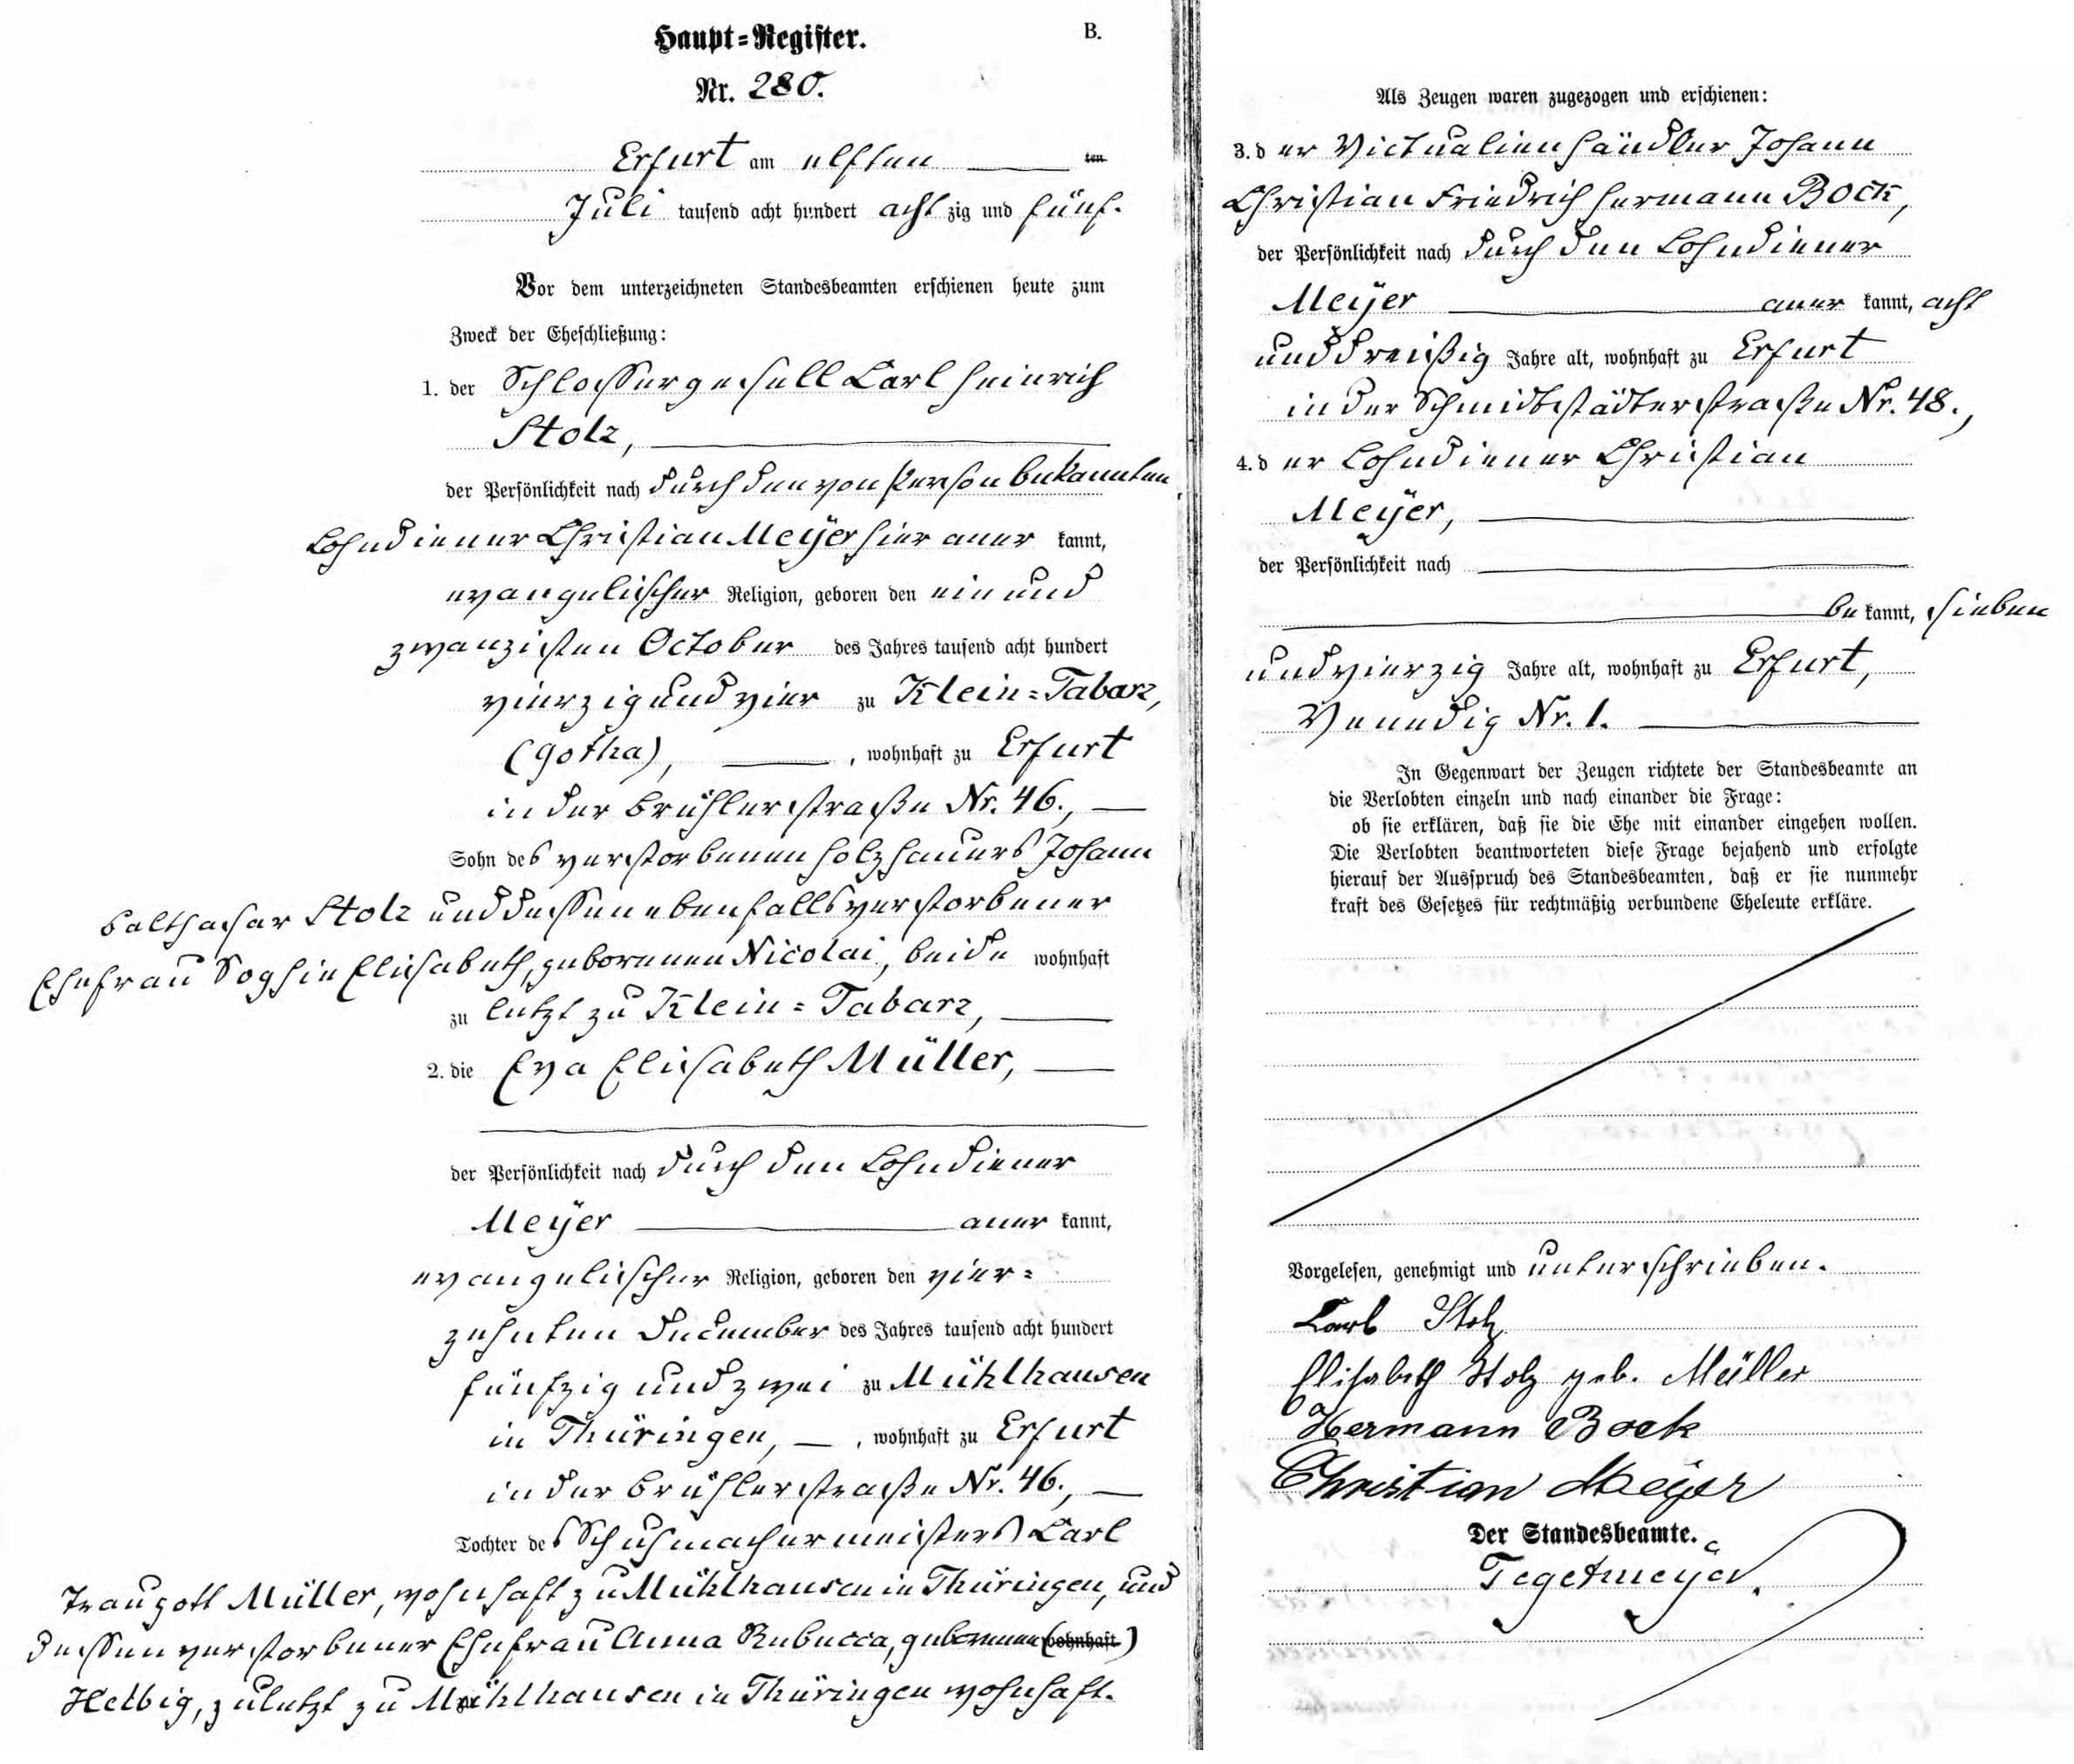 Haupt-Register.
B.
Nr. 280.
Erfurt am elften ten
Juli tausend acht hundert achtzig und fünf.
Vor dem unterzeichneten Standesbeamten erschienen heute zum
Zweck der Eheschließung:
1. der Schlossergesell Carl Heinrich
Stolz,
der Persönlichkeit nach durch den von Person bekannten
Lohndiener Christian Meÿer hier aner kannt,
evangelischer Religion, geboren den ein und
zwanzigsten October des Jahres tausend acht hundert
vierzig und vier zu Klein=Tabarz,
(Gotha), , wohnhaft zu Erfurt
in der Brühlerstraße Nr. 46.,
Sohn des verstorbenen Holzhauers Johann
Balthasar Stolz und dessen ebenfalls verstorbener
Ehefrau Sophie Elisabeth, geborenen Nicolai, beide wohnhaft
zu letzt zu Klein=Tabarz,
2. die Eva Elisabeth Müller,
der Persönlichkeit nach durch den Lohndiener
Meÿer aner kannt,
evangelischer Religion, geboren den vier=
zehnten December des Jahres tausend acht hundert
fünfzig und zwei zu Mühlhausen
in Thüringen, , wohnhaft zu Erfurt
in der Brühlerstraße Nr. 46.,
Tochter des Schuhmachermeisters Carl
Traugott Müller, wohnhaft zu Mühlhausen in Thüringen, und
dessen verstorbener Ehefrau Anna Rebecca, geborenen (wohnhaft)
Helbig, zuletzt zu Mühlhausen in Thüringen wohnhaft.
Als Zeugen waren zugezogen und erschienen:
3. der Victualienhändler Johann
Christian Friedrich Hermann Bock,
der Persönlichkeit nach durch den Lohndiener
Meÿer aner kannt, acht
und dreißig Jahre alt, wohnhaft zu Erfurt
in der Schmidtstädterstraße Nr. 48.,
4. der Lohndiener Christian
Meÿer,
der Persönlichkeit nach
be kannt, sieben
und vierzig Jahre alt, wohnhaft zu Erfurt,
Venedig Nr. 1.
In Gegenwart der Zeugen richtete der Standesbeamte an
die Verlobten einzeln und nach einander die Frage:
ob sie erklären, daß sie die Ehe mit einander eingehen wollen.
Die Verlobten beantworteten diese Frage bejahend und erfolgte
hierauf der Ausspruch des Standesbeamten, daß er sie nunmehr
kraft des Gesetzes für rechtmäßig verbundene Eheleute erkläre.
Vorgelesen, genehmigt und unterschrieben.
Carl Stolz
Elisabeth Stolz geb. Müller
Hermann Bock
Christian Meÿer
Der Standesbeamte.
Tegetmeÿer.